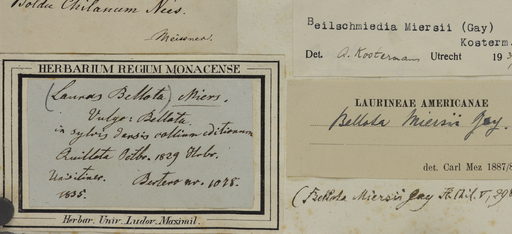 Boldu Chilanum Nees.
Meissner.
HERBARIUM REGIUM MONACENSE
(Laurus Bellota) Miers.
Vulgo: Bellota.
in sylvis densis collium editiorum
Quillota Octbr. 1829 Hrbr.
Unio itiner.
1835. Bertero nr. 1028.
Herbar. Univ. Ludov. Maximil.
Beilschmiedia Miersii (Gay)
Kosterm.
Det. A. Kostermans Utrecht 19
LAURINEAE AMERICANAE
Bellota Miersii Gay.
det. Carl Mez 1887/8
(Bellota Miersii Gay Fl. Chil. V, 298